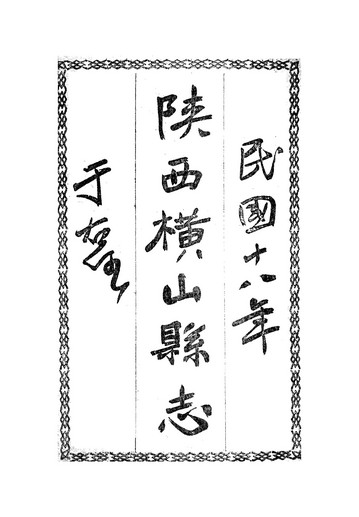 民國十八年
陕西橫山縣志
于右任